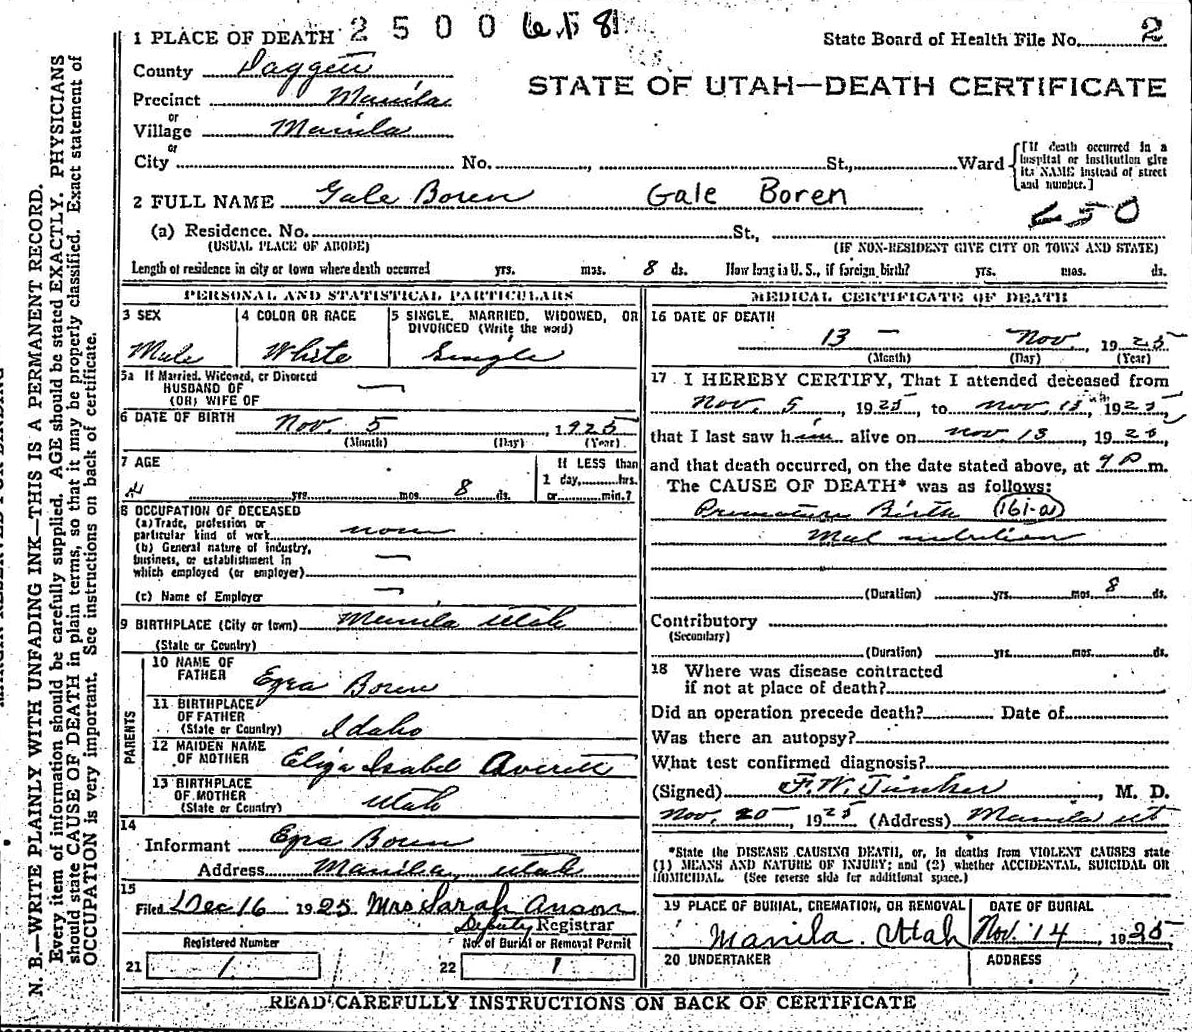 1 PLACE OF DEATH 2 5 0 0 658
State Board of Health File No. 2
County Daggett
STATE OF UTAH—DEATH CERTIFICATE
Precinct Manila
or
Village Manila
or
City No. , St., Ward
[If death occurred in a hospital or institution give its NAME instead of street and number.]
2 FULL NAME Gale Boren Gale Boren
650
(a) Residence. No. St.,
(USUAL PLACE OF ABODE) (IF NON-RESIDENT GIVE CITY OR TOWN AND STATE)
Length of residence in city or town where death occurred yrs. mos. 8 ds. How long in U. S., if foreign birth? yrs. mos. ds.
PERSONAL AND STATISTICAL PARTICULARS
3 SEX 4 COLOR OR RACE 5 SINGLE, MARRIED, WIDOWED, OR
DIVORCED (Write the word)
Male White Single
5a If Married, Widowed, or Divorced
HUSBAND OF —
(OR) WIFE OF
6 DATE OF BIRTH Nov. 5, 1925
(Month) (Day) (Year)
7 AGE If LESS than
1 day, hrs.
yrs. mos. 8 ds. or min.?
8 OCCUPATION OF DECEASED
(a) Trade, profession or
particular kind of work none
(b) General nature of industry,
business, or establishment in —
which employed (or employer)
(c) Name of Employer —
9 BIRTHPLACE (City or town) Manila Utah
(State or Country)
PARENTS
10 NAME OF
FATHER Ezra Boren
11 BIRTHPLACE
OF FATHER
(State or Country) Idaho
12 MAIDEN NAME
OF MOTHER Eliza Isabel Averett
13 BIRTHPLACE
OF MOTHER
(State or Country) Utah
14
Informant Ezra Boren
Address Manila, Utah
15
Filed Dec 16 1925 Mrs Sarah Anson
Deputy Registrar
Registered Number No. of Burial or Removal Permit
21 1 22 1
MEDICAL CERTIFICATE OF DEATH
16 DATE OF DEATH
13 — Nov, 1925
(Month) (Day) (Year)
17 I HEREBY CERTIFY, That I attended deceased from
Nov. 5, 1925, to Nov. 13th, 1925,
that I last saw him alive on Nov 13, 1925,
and that death occurred, on the date stated above, at 9 P m.
The CAUSE OF DEATH* was as follows:
Premature Birth (161-a)
Mal nutrition
(Duration) yrs. mos. 8 ds.
Contributory
(Secondary)
(Duration) yrs. mos. ds.
18 Where was disease contracted
if not at place of death?
Did an operation precede death? Date of
Was there an autopsy?
What test confirmed diagnosis?
(Signed) F. W. Tinker, M. D.
Nov. 20, 1925 (Address) Manila Ut
*State the DISEASE CAUSING DEATH, or, in deaths from VIOLENT CAUSES state
(1) MEANS AND NATURE OF INJURY; and (2) whether ACCIDENTAL, SUICIDAL OR
HOMICIDAL. (See reverse side for additional space.)
19 PLACE OF BURIAL, CREMATION, OR REMOVAL DATE OF BURIAL
Manila. Utah Nov. 14, 1925
20 UNDERTAKER ADDRESS
READ CAREFULLY INSTRUCTIONS ON BACK OF CERTIFICATE
N. B.—WRITE PLAINLY WITH UNFADING INK—THIS IS A PERMANENT RECORD.
Every item of information should be carefully supplied. AGE should be stated EXACTLY. PHYSICIANS
should state CAUSE OF DEATH in plain terms, so that it may be properly classified. Exact statement of
OCCUPATION is very important. See instructions on back of certificate.